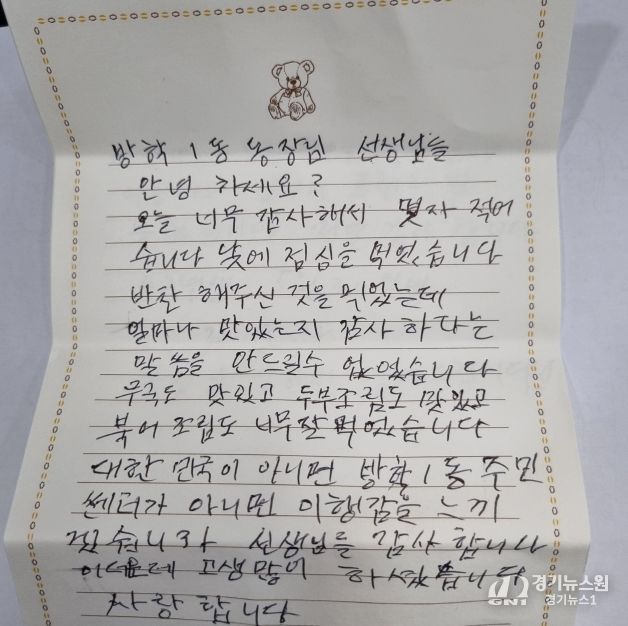 방학 1동 동장님 선생님들
안녕 하세요?
오늘 너무 감사해서 몇자 적어
습니다 낮에 점심을 먹었습니다
반찬 해주신 것을 먹었는데
얼마나 맛있는지 감사 하다는
말씀을 안드릴수 없었습니다
무국도 맛있고 두부조림도 맛있고
북어 조림도 너무잘 먹었습니다
대한 민국이 아니면 방학1동 주민
쎈터가 아니면 이행감을 느끼
선생님들 감사 합니다
고생많이 하셨습니다
사랑 합니다
경기뉴스원
GN1 경기뉴스1